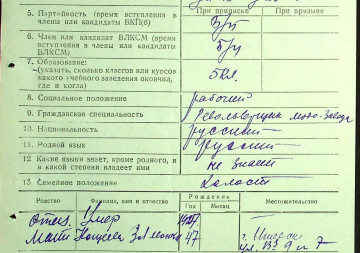 При приписке
5. Партийность (время вступления в члены или кандидаты ВКП(б)
б/п
6. Член или кандидат ВЛКСМ (время вступления в члены или кандидаты ВЛКСМ)
б/у
7. Образование: (указать, сколько классов или курсов какого учебного заведения окончил, где и когда)
5кл.
8. Социальное положение
рабочий
9. Гражданская специальность
Револьверщик мото-завода
10. Национальность
русский
11. Родной язык
русский
12. Какие языки знает, кроме родного, и в какой степени владеет ими
не знает
13 Семейное положение
холост
Родство Фамилия, имя и отчество Рождение Местожительство
Год Месяц
отец Умер
Мать 47 г. Ижевск